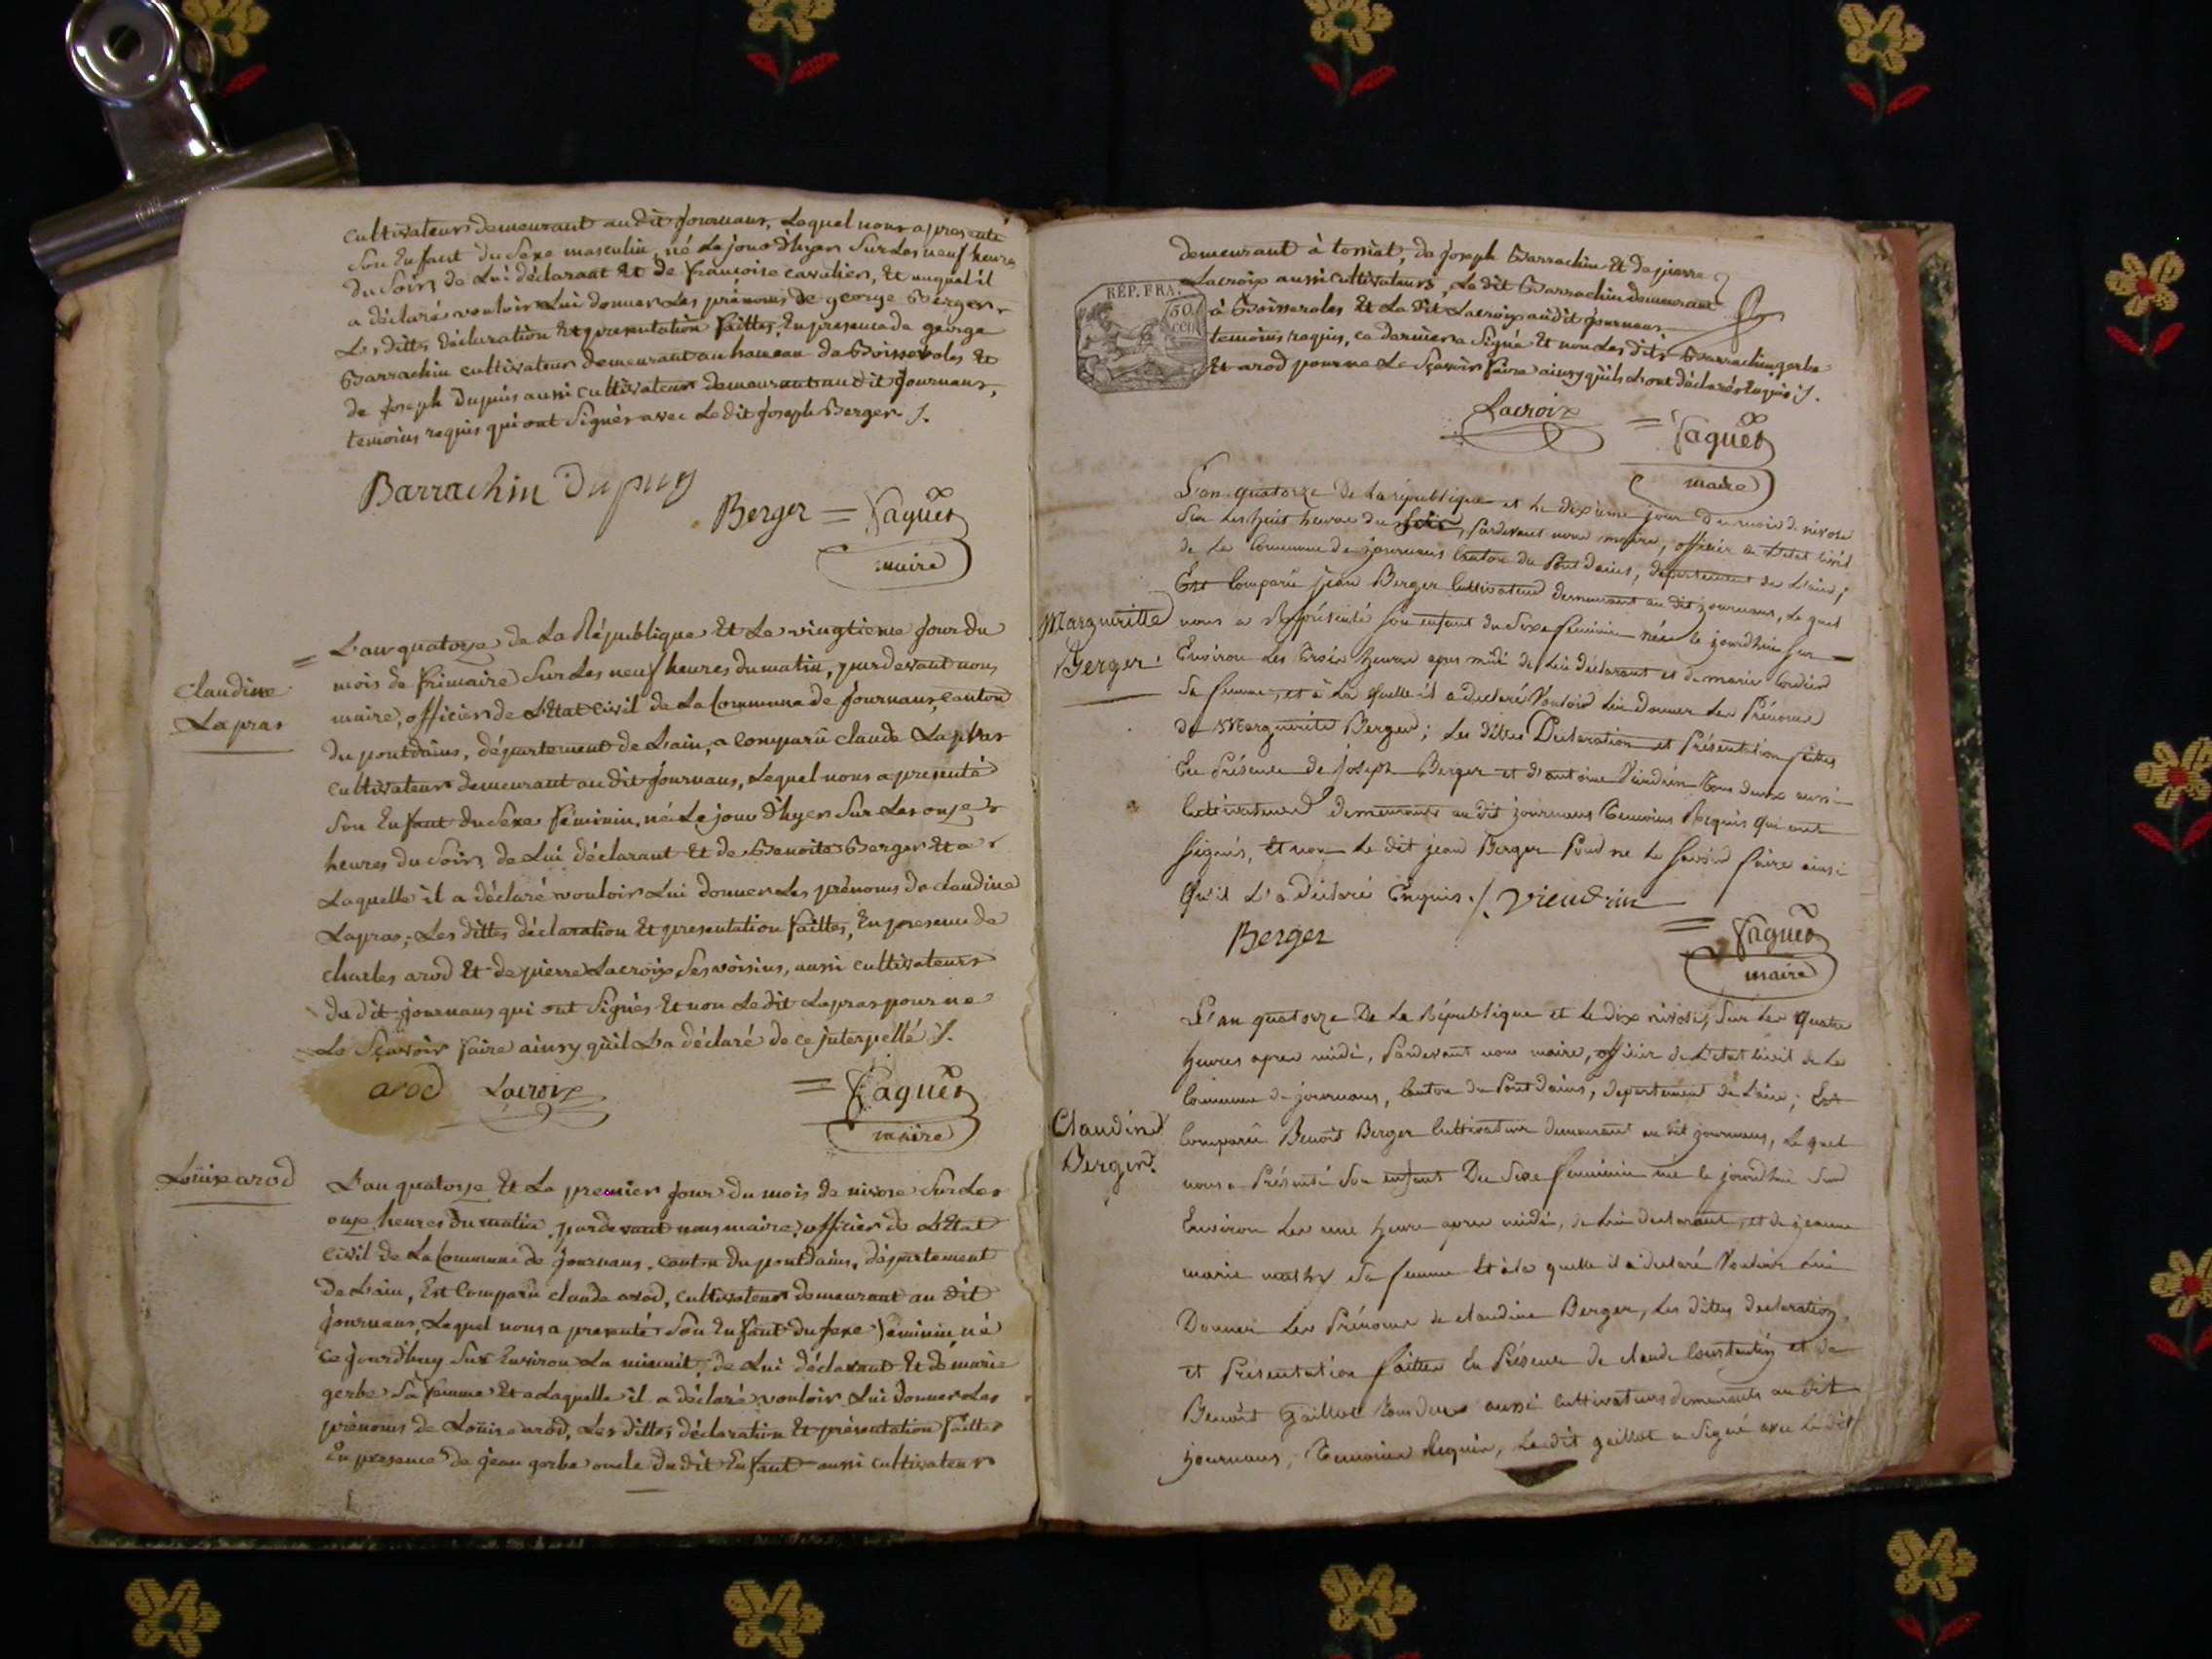 cultivateur demeurant au dit journans, Lequel nous a presenté
son Enfant du sexe masculin, né Le jour d'hyer sur Les neuf heures
du soir, de Lui déclarant Et de françoise cavalier, Et auquel il
a déclaré vouloir Lui donner Les prénoms de george Berger,
Les dittes déclaration Et presentation faittes, En presence de george
Barrachin cultivateur demeurant au hameau de Boisserolles Et
de joseph Dupuis aussi cultivateur demeurant au dit journans,
temoins requis qui ont signés avec Le dit joseph Berger ./.
Barrachin Dupuy
Berger = Paquet
maire
Claudine
Lapras
= L'an quatorze de La République Et Le vingtieme jour du
mois de frimaire sur Les neuf heures du matin, pardevant nous
maire, officier de L'Etat civil de La Commune de journans, canton
du pontdains, département de L'ain, a comparû claude Lapras
cultivateur demeurant au dit journans, Lequel nous a presenté
son Enfant du sexe féminin, né Le jour d'hyer sur Les onze
heures du soir, de Lui déclarant Et de Benoite Berger Et a
Laquelle il a déclaré vouloir Lui donner Les prénoms de claudine
Lapras; Les dittes déclaration Et presentation faittes, En presence de
charles arod Et de pierre Lacroix ses voisins, aussi cultivateurs
du dit journans qui ont signés Et non Le dit Lapras pour ne
Le sçavoir faire ainsy qu'il L'a déclaré de ce interpellé ./.
arod Lacroix = Paquet
maire
Loüise arod
L'an quatorze Et Le premier jour du mois de nivose sur Les
onze heures du matin, pardevant nous maire, officier de L'Etat
civil de La Commune de journans, canton du pontdains, département
de L'ain, Est Comparû claude arod, cultivateur demeurant au dit
journans, Lequel nous a presenté son Enfant du sexe féminin né
ce jourd'huy sur Environ La minuit, de Lui déclarant Et de marie
gerbe sa femme Et a Laquelle il a déclaré vouloir Lui donner Les
prénoms de Loüise arod, Les dittes déclaration Et présentation faittes
En presence de jean gerbe oncle du dit Enfant aussi cultivateur
demeurant à tossiat, de joseph Barrachin Et de pierre
Lacroix aussi cultivateurs, Le dit Barrachin demeurant
à Boisserolles Et Le dit Lacroix au dit journans
temoins requis, ce dernier a signé Et non Les dits Barrachin, gerbe
Et arod pour ne Le sçavoir faire ainsy qu'ils L'ont déclarés Enquis ./.
RÉP. FRA.
50
cen
Lacroix = Paquet
maire
Margueritte
Berger
L'an quatorze de la république et le dixieme jour du mois de nivose
sur les huit heures du soir, Pardevant nous maire, officier de L'etat Civil
de la Commune de journans Canton du Pont dains, departement de L'ain;
Est Comparu jean Berger Cultivateur demeurant au dit journans, Le quel
nous a Représenté son enfant du Sexe feminin née le jourdhui sur
Environ Les trois heures apres midi de Lui déclarant et de marie
sa femme, et à La quelle il a declaré Vouloir Lui donner Les Prénoms
de Marguerite Berger; Les dittes Declaration et Présentation faittes
En Présence de joseph Berger et d'antoine Viendrin Tous deux aussi
Cultivateurs demeurants au dit journans Temoins Requis qui ont
signés, Et non Le dit jean Berger Pour ne Le savoir faire ainsi
qu'il L'a declaré Enquis ./. Viendrin
Berger = Paquet
maire
Claudine
Berger
L'an quatorze De La République et le dix nivose, Sur Les quatre
heures apres midi, Pardevant nous maire, officier de L'etat Civil de La
Commune de journans, Canton du Pont dains, departement de L'ain; Est
Comparû Benoit Berger Cultivateur demeurant au dit journans, Le quel
nous a Présenté Son enfant Du Sexe feminin née le jourdhui Sur
Environ Les une heure apres midi, de Lui declarant, et de jeanne
marie sa femme Et à la quelle il a declaré Vouloir Lui
Donner Les Prénoms de claudine Berger, Les dittes declaration,
et Présentation faittes En Présence de claude Constantin et de
Benoit Gaillot tous deux aussi Cultivateurs demeurants au dit
journans, Temoins Requis, Le dit gaillot a signé avec le dit